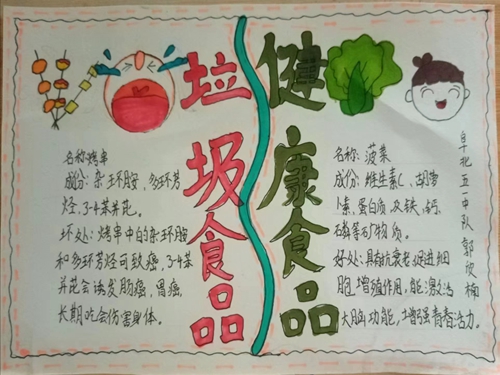 垃圾食品
健康食品
名称:烤串
成份:杂环胺、多环芳
烃、3-4苯并芘。
坏处:烤串中的杂环胺
和多环芳烃可致癌,3-4苯
并芘会诱发肠癌,胃癌,
长期吃会伤害身体。
名称:菠菜
成份:维生素C、胡萝
卜素、蛋白质及铁、钙、
磷等矿物质。
好处:具有抗衰老促进细
胞增殖作用,能激活
大脑功能,增强青春活力。
阜北五一中队郭欣楠